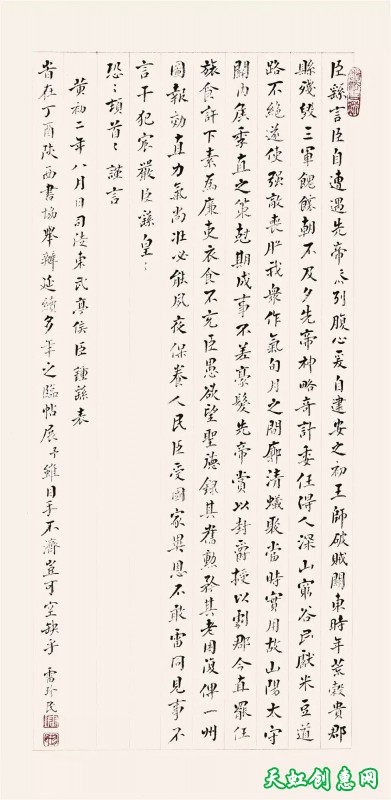 臣繇言臣自遭遇先帝忝列腹心爰自建安之初王師破賊關東時年荒穀貴郡
縣殘毀三軍餽饟朝不及夕先帝神略奇計委任得人深山窮谷民獻米豆道
路不絕遂使強敵喪膽我眾作氣旬月之間廓清蟻聚當時實用故山陽太守
關內侯季直之策尅期成事不差豪髮先帝賞以封爵授以劇郡今直罷任
旅食許下素為廉吏衣食不充臣愚欲望聖德錄其舊勳矜其老困復俾一州
圖報効直力氣尚壯必能夙夜保養人民臣受國家異恩不敢雷同見事不
言干犯宸嚴臣繇皇:
恐:頓首:謹言
黃初二年八月日司徒東武亭侯臣鍾繇表
歲在丁酉陝西書協舉辦延續多年之臨帖展予雖目手不濟豈可空缺乎 雷珍民
天虹创意网